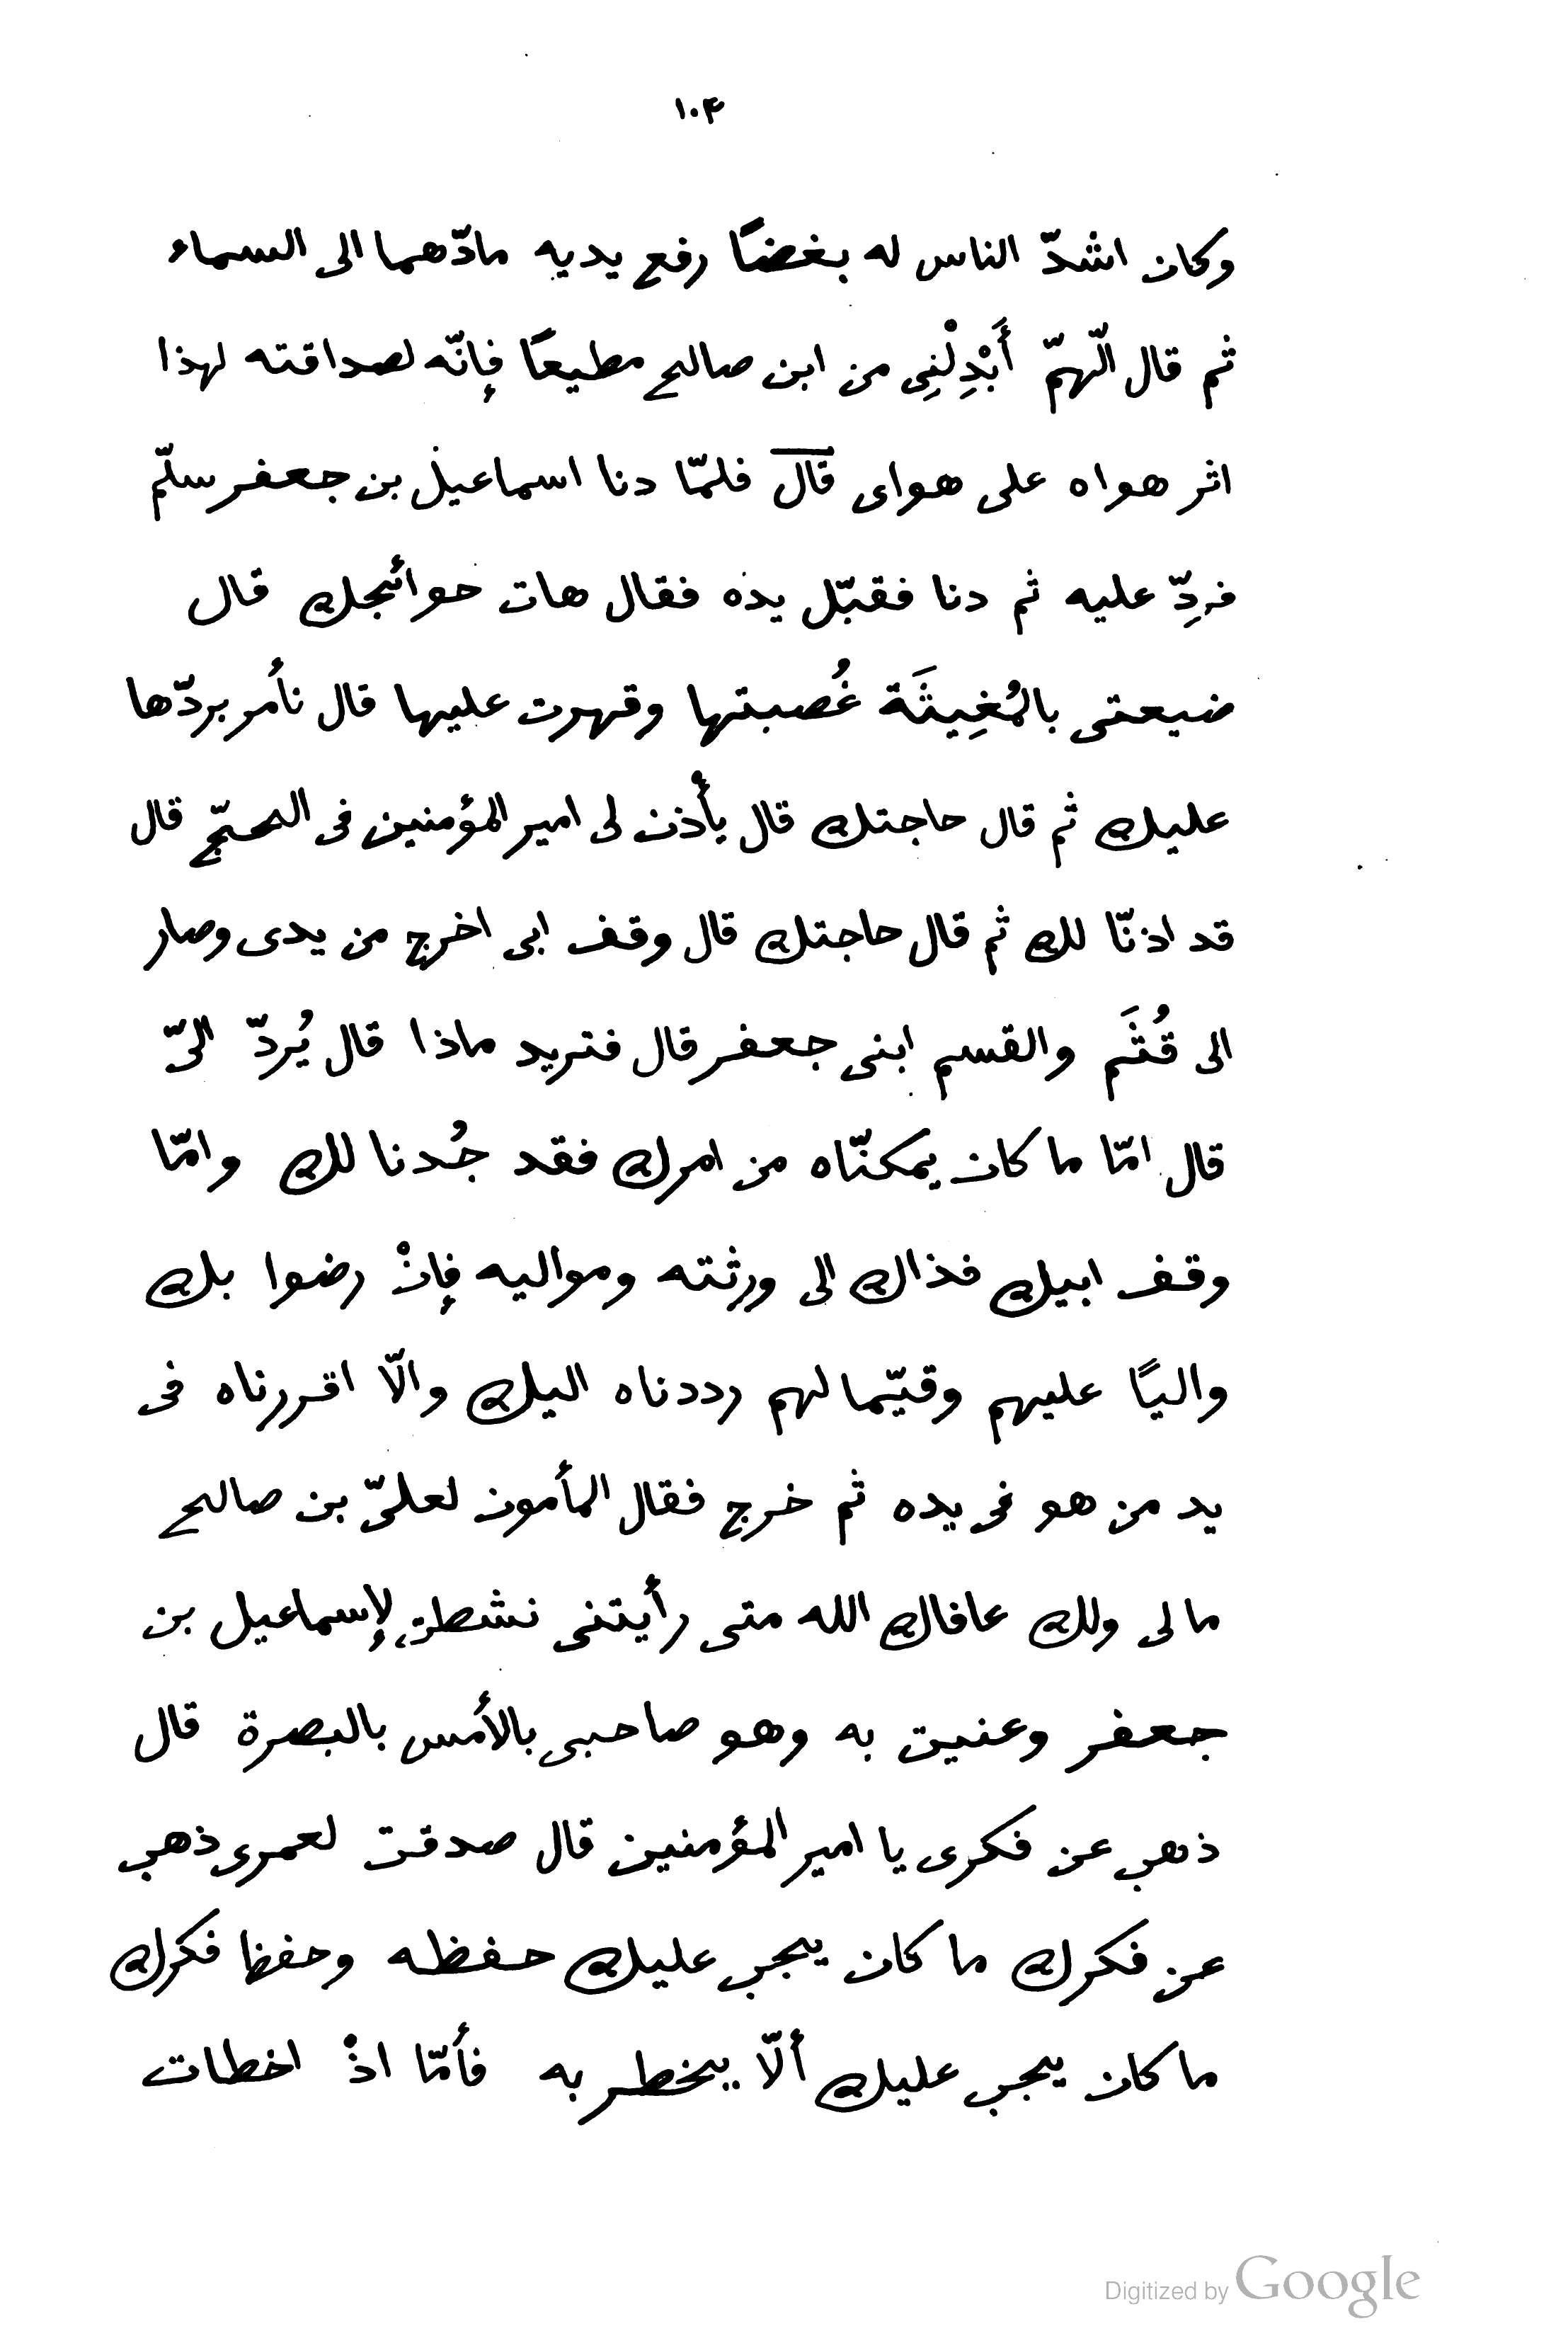 ١٠٤
وكان اشدّ الناس له بغضًا رفع يديه مادّهما الى السماء
ثم قال الّهمّ أَبْدِلْنِى من ابن صالح مطيعًا فإنّه لصداقته لهذا
اثر هواه على هواى قال فلمّا دنا اسماعيل بن جعفر سلّم
فردِّ عليه ثم دنا فقبّل يده فقال هات حوائجك قال
ضيعتى بالمُغِيثَة غُصبتها وقهرت عليها قال نأمر بردّها
عليك ثم قال حاجتك قال يأذن لى امير المؤمنين فى الحجّ قال
قد اذنّا لك ثم قال حاجتك قال وقف ابى اخرج من يدى وصار
الى قُثَم والقسم ابنى جعفر قال فتريد ماذا قال يُردّ الىّ
قال امّا ما كان يمكنّاه من امرك فقد جُدنا لك وامّا
وقف ابيك فذاك الى ورثته ومواليه فإنْ رضوا بك
واليًا عليهم وقيّما لهم رددناه اليك والّا اقررناه فى
يد من هو فى يده ثم خرج فقال المأمون لعلىّ بن صالح
ما لى ولك عافاك الله متى رأيتنى نشطت لإسماعيل بن
جعفر وعنيت به وهو صاحبى بالأمس بالبصرة قال
ذهب عن فكرى يا امير المؤمنين قال صدقت لعمرى ذهب
عن فكرك ما كان يجب عليك حفظه وحفظ فكرك
ما كان يجب عليك ألّا يخطر به فأمّا اذْ اخطات
Digitized by Google